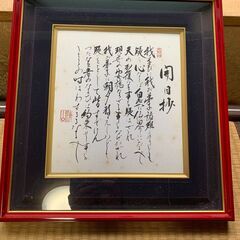 開目抄
我並に我が弟子諸難ありとも
疑う心なくば自然に仏界にいたるべし
天の加護なき事を疑はざれ
現世の安穏ならざる事をなげかざれ
我が弟子に朝夕教えしかども
疑いををこして皆すてけん
つたなき者のならひは約束せし
事をまことの時はわするるなるべし